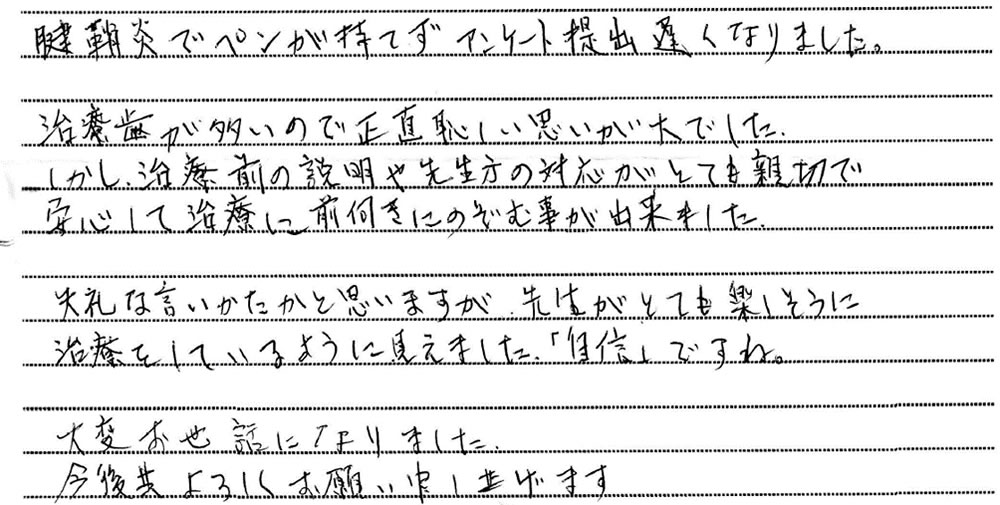 腱鞘炎でペンが持てずアンケート提出遅くなりました。
治療歯が多いので正直恥しい思いが大でした.
しかし、治療前の説明や先生方の対応がとても親切で
安心して治療に前向きにのぞむ事が出来ました.
失礼な言いかたかと思いますが、先生がとても楽しそうに
治療をしているように見えました.「自信」ですね。
大変お世話になりました.
今後共よろしくお願い申し上げます